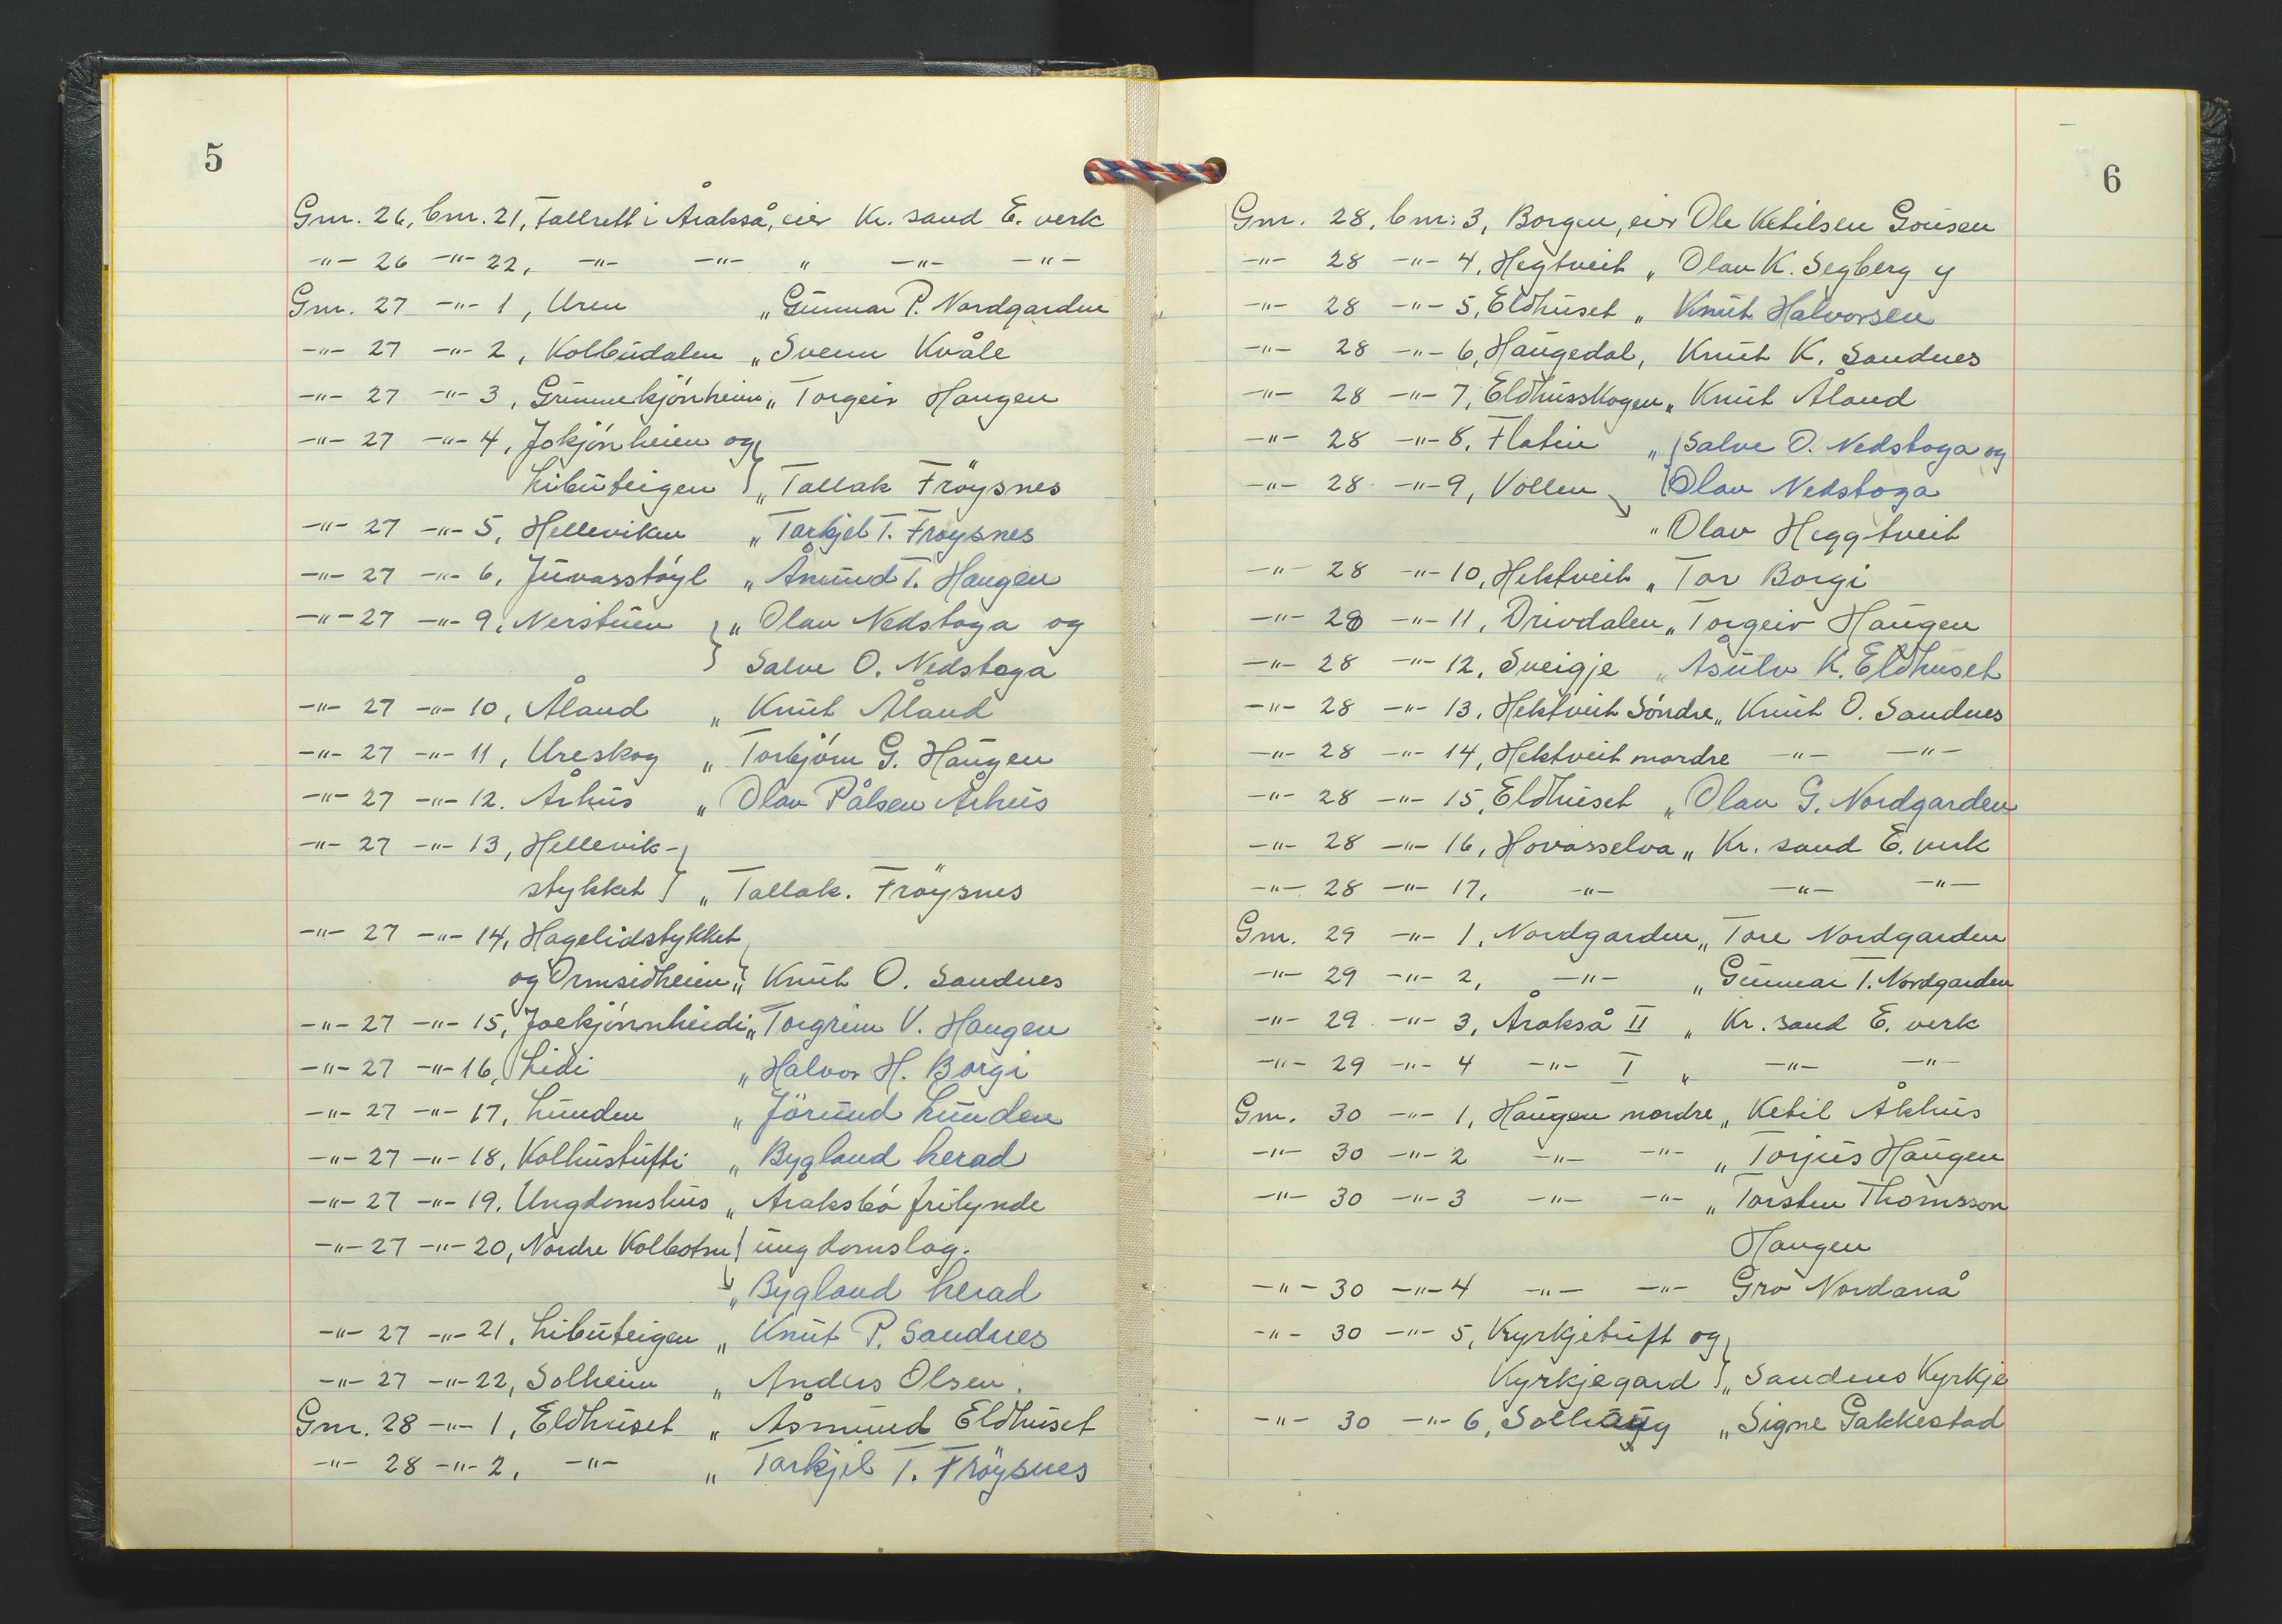 5
Gnr. 26, bnr. 21, Fallrett i Årakså, eier Kr. sand E. verk
-"- 26 -"- 22, -"- -"- " -"- -"-
Gnr. 27 -"- 1, Uren " Gunnar P. Nordgarden
-"- 27 -"- 2, Kolbudalen " Svenn Kvåle
-"- 27 -"- 3, Grunnekjónheim " Torgeir Haugen
-"- 27 -"- 4, Jokjónheien og
Libuteigen } " Tallak Fröysnes
-"- 27 -"- 5, Helleviken " Tarkjel T. Fröysnes
-"- 27 -"- 6, Juvasstøyl " Åmund T. Haugen
-"- 27 -"- 9, Nerstuen } " Olav Nedstoga og
Salve O. Nedstoga
-"- 27 -"- 10, Åland " Knut Åland
-"- 27 -"- 11, Ureskog " Torbjórn G. Haugen
-"- 27 -"- 12. Århus " Olav Pålsen Århus
-"- 27 -"- 13, Hellevik-
stykket } " Tallak. Fröysnes
-"- 27 -"- 14, Hagelidstykket
og Ormsidheien } " Knut O. Sandnes
-"- 27 -"- 15, Joekjónnheidi " Torgrim V. Haugen
-"- 27 -"- 16, Lidi " Halvor H. Borgi
-"- 27 -"- 17, Lunden " Jörund Lunden
-"- 27 -"- 18, Kolhustufti " Bygland herad
-"- 27 -"- 19. Ungdomshus " Åraksbó frilynde
-"- 27 -"- 20, Nordre Kolbotn } ungdomslag.
" Bygland herad
-"- 27 -"- 21, Libuteigen " Knut P. Sandnes
-"- 27 -"- 22, Solheim " Anders Olsen.
Gnr. 28 -"- 1, Eldhuset " Åsmund Eldhuset
-"- 28 -"- 2, -"- " Tarkjel T. Fröysnes
6
Gnr. 28, bnr: 3, Borgen, eier Ole Ketilsen Gousen
-"- 28 -"- 4, Hegtveit " Olav K. Segberg y
-"- 28 -"- 5, Eldhuset " Knut Halvorsen
-"- 28 -"- 6, Haugedal, Knut K. Sandnes
-"- 28 -"- 7, Eldhusskogen " Knut Åland
-"- 28 -"- 8, Flatin " { Salve O. Nedstoga og
-"- 28 -"- 9, Vollen { Olav Nedstoga
" Olav Heggtveit
-"- 28 -"- 10, Hektveit " Tor Borgi
-"- 28 -"- 11, Drivdalen " Torgeir Haugen
-"- 28 -"- 12, Sveigje " Åsulv K. Eldhuset
-"- 28 -"- 13, Hektveit Söndre " Knut O. Sandnes
-"- 28 -"- 14, Hektveit nordre -"- -"-
-"- 28 -"- 15, Eldhuset " Olav G. Nordgarden
-"- 28 -"- 16, Hovasselva " Kr. sand E. verk
-"- 28 -"- 17, -"- -"- -"-
Gnr. 29 -"- 1, Nordgarden " Tore Nordgarden
-"- 29 -"- 2, -"- " Gunnar T. Nordgarden
-"- 29 -"- 3, Årakså II " Kr. sand E. verk
-"- 29 -"- 4 -"- I " -"- -"-
Gnr. 30 -"- 1, Haugen nordre " Ketil Åkhus
-"- 30 -"- 2 -"- -"- " Torjus Haugen
-"- 30 -"- 3 -"- -"- " Torsten Thomsson
Haugen
-"- 30 -"- 4 -"- -"- Gro Nordanå
-"- 30 -"- 5, Kyrkjetuft og
Kyrkjegard } " Sandnes Kyrkje
-"- 30 -"- 6, Solhaug " Signe Gakkestad